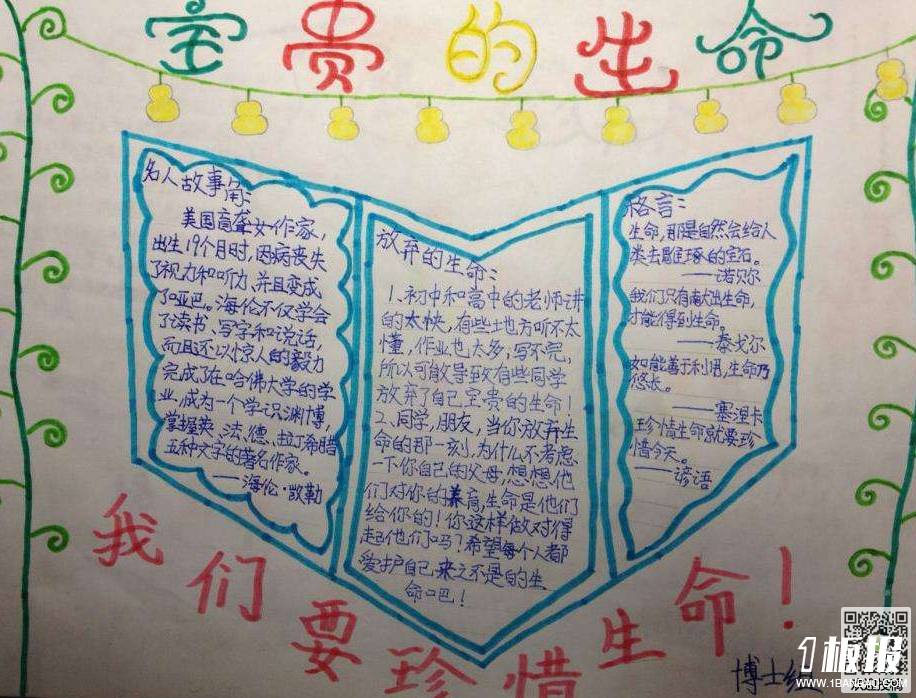 宝贵的生命
名人故事角：
美国盲聋女作家，
出生19个月时，因病丧失
了视力和听力，并且变成
了哑巴。海伦不仅学会
了读书、写字和说话，
而且还以惊人的毅力
完成了在哈佛大学的学
业，成为一个学识渊博，
掌握英、法、德、拉丁希腊
五种文字的著名作家。
——海伦·凯勒
放弃的生命：
1、初中和高中的老师讲
的太快，有些地方听不太
懂，作业也太多；写不完，
所以可能导致有些同学
放弃了自己宝贵的生命！
2、同学，朋友，当你放弃生
命的那一刻，为什么不考虑
一下你自己的父母，想想他
们对你的养育，生命是他们
给你的！你这样做对得
起他们吗？希望每个人都
爱护自己来之不是的生
命吧！
格言：
生命，那是自然会给人
类去雕琢的宝石。
——诺贝尔
我们只有献出生命，
才能得到生命。
——泰戈尔
如能善于利用，生命乃
悠长。
——塞涅卡
珍惜生命就要珍
惜今天。
——谚语
我们要珍惜生命！
博士
1板报
WWW.1BANBAO.COM